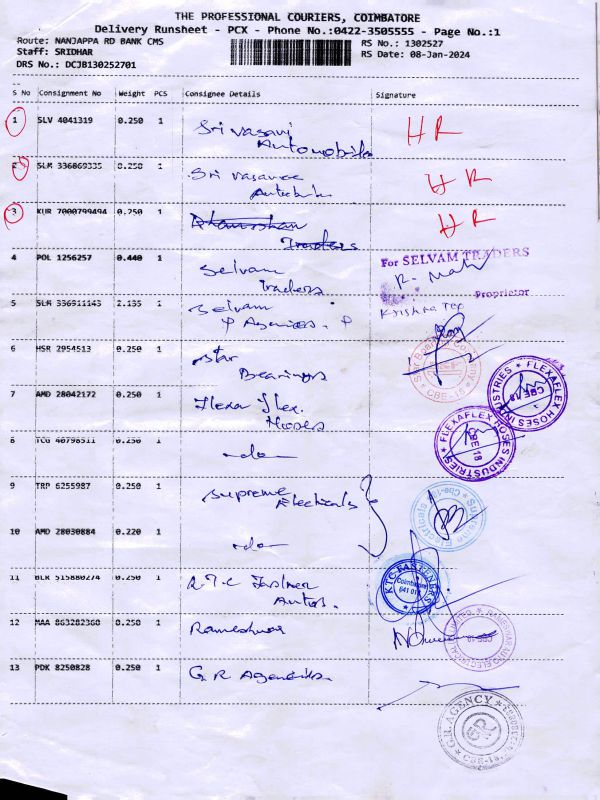 THE PROFESSIONAL COURIERS, COIMBATORE
Delivery Runsheet - PCX - Phone No.:0422-3505555 - Page No.:1
Route: NANJAPPA RD BANK CMS
Staff: SRIDHAR
DRS No.: DCJB130252701
RS No.: 1302527
RS Date: 08-Jan-2024
S No Consignment No Weight PCS Consignee Details Signature
1 SLV 4041319 0.250 1 Sri Vasavi Automobils HR
SLM 336869335 0.250 1 Sri Vasavee HR
3 KUR 7000799494 0.250 1 Traders HR
4 POL 1256257 0.440 1 Selvam Traders
For SELVAM TRADERS
Proprietor
5 SLM 336911143 2.135 1 Selvam
6 HSR 2954513 0.250 1 Star Bearings
7 AMD 28042172 0.250 1 Flexa flex. Hoses
FLEXAFLEX HOSES INDUSTRIES CBE 18
8 TCG 40798511 0.250 1 -do-
FLEXAFLEX HOSES INDUSTRIES CBE 18
9 TRP 6255987 0.250 1 Supreme Electicals
10 AMD 28030884 0.220 1 -do-
11 BLR 515880274 0.250 1 K.T.C
KTC FASTENERS Coimbatore
12 MAA 863282360 0.250 1 Rameshwar
13 PDK 8250828 0.250 1 G.R Agencies
G.R. AGENCY GR CBE-18